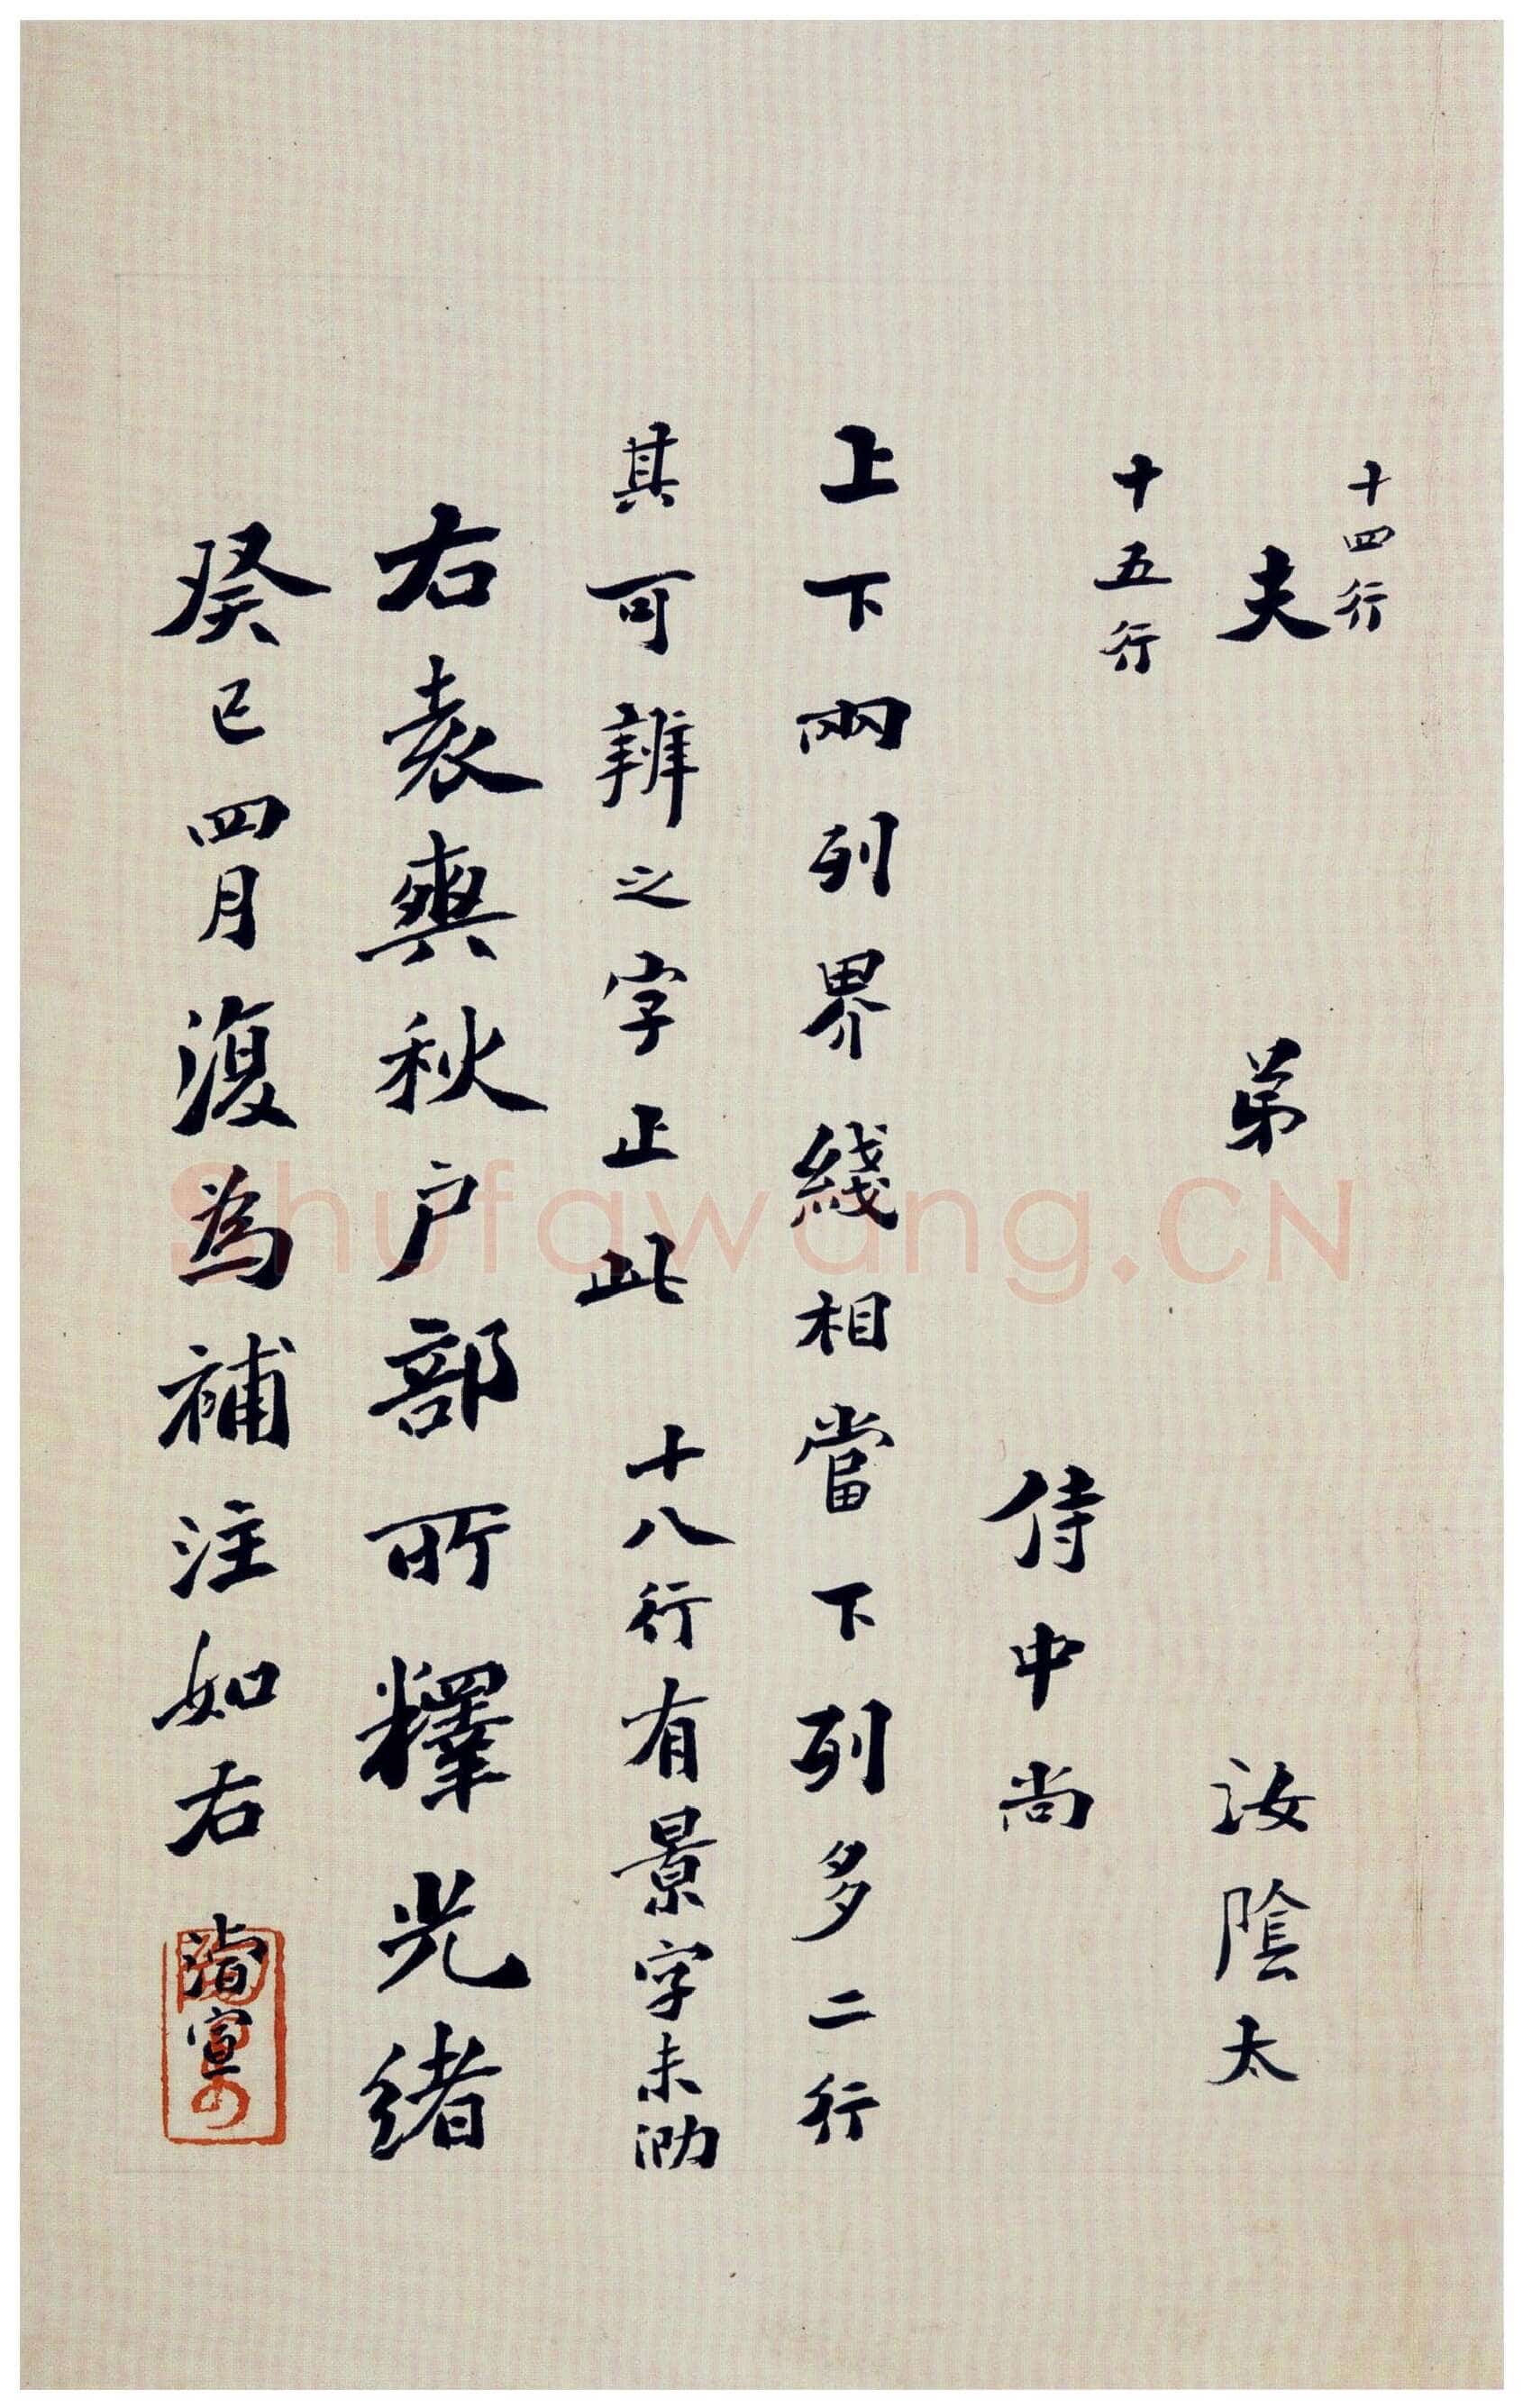 十四行
夫 弟 汝陰太
十五行
侍中尚
上下兩列界綫相當下列多二行
其可辨之字止此 十八行有景字未泐
右袁爽秋户部所釋光緒
癸巳四月復為補注如右
Shufawang.CN